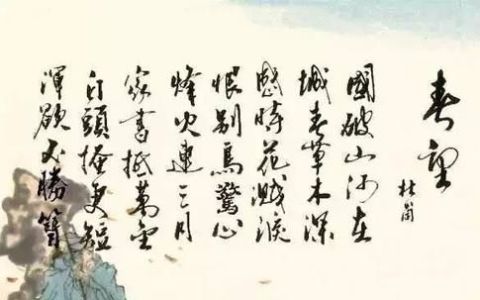 春望
杜甫
國破山河在
城春草木深
感時花濺淚
恨別鳥驚心
烽火連三月
家書抵萬金
白頭搔更短
渾欲不勝簪